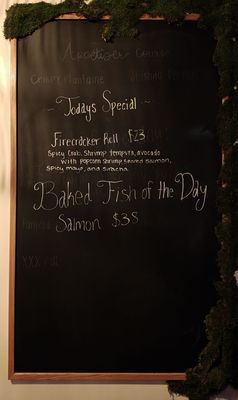 Appetizer
Crispy Plantains
~ Todays Special ~
Firecracker Roll $23
Spicy Crab, Shrimp tempura, avocado
with popcorn shrimp, seared salmon,
spicy mayo, and siracha.
Baked Fish of the Day
Salmon $38
XXX Roll